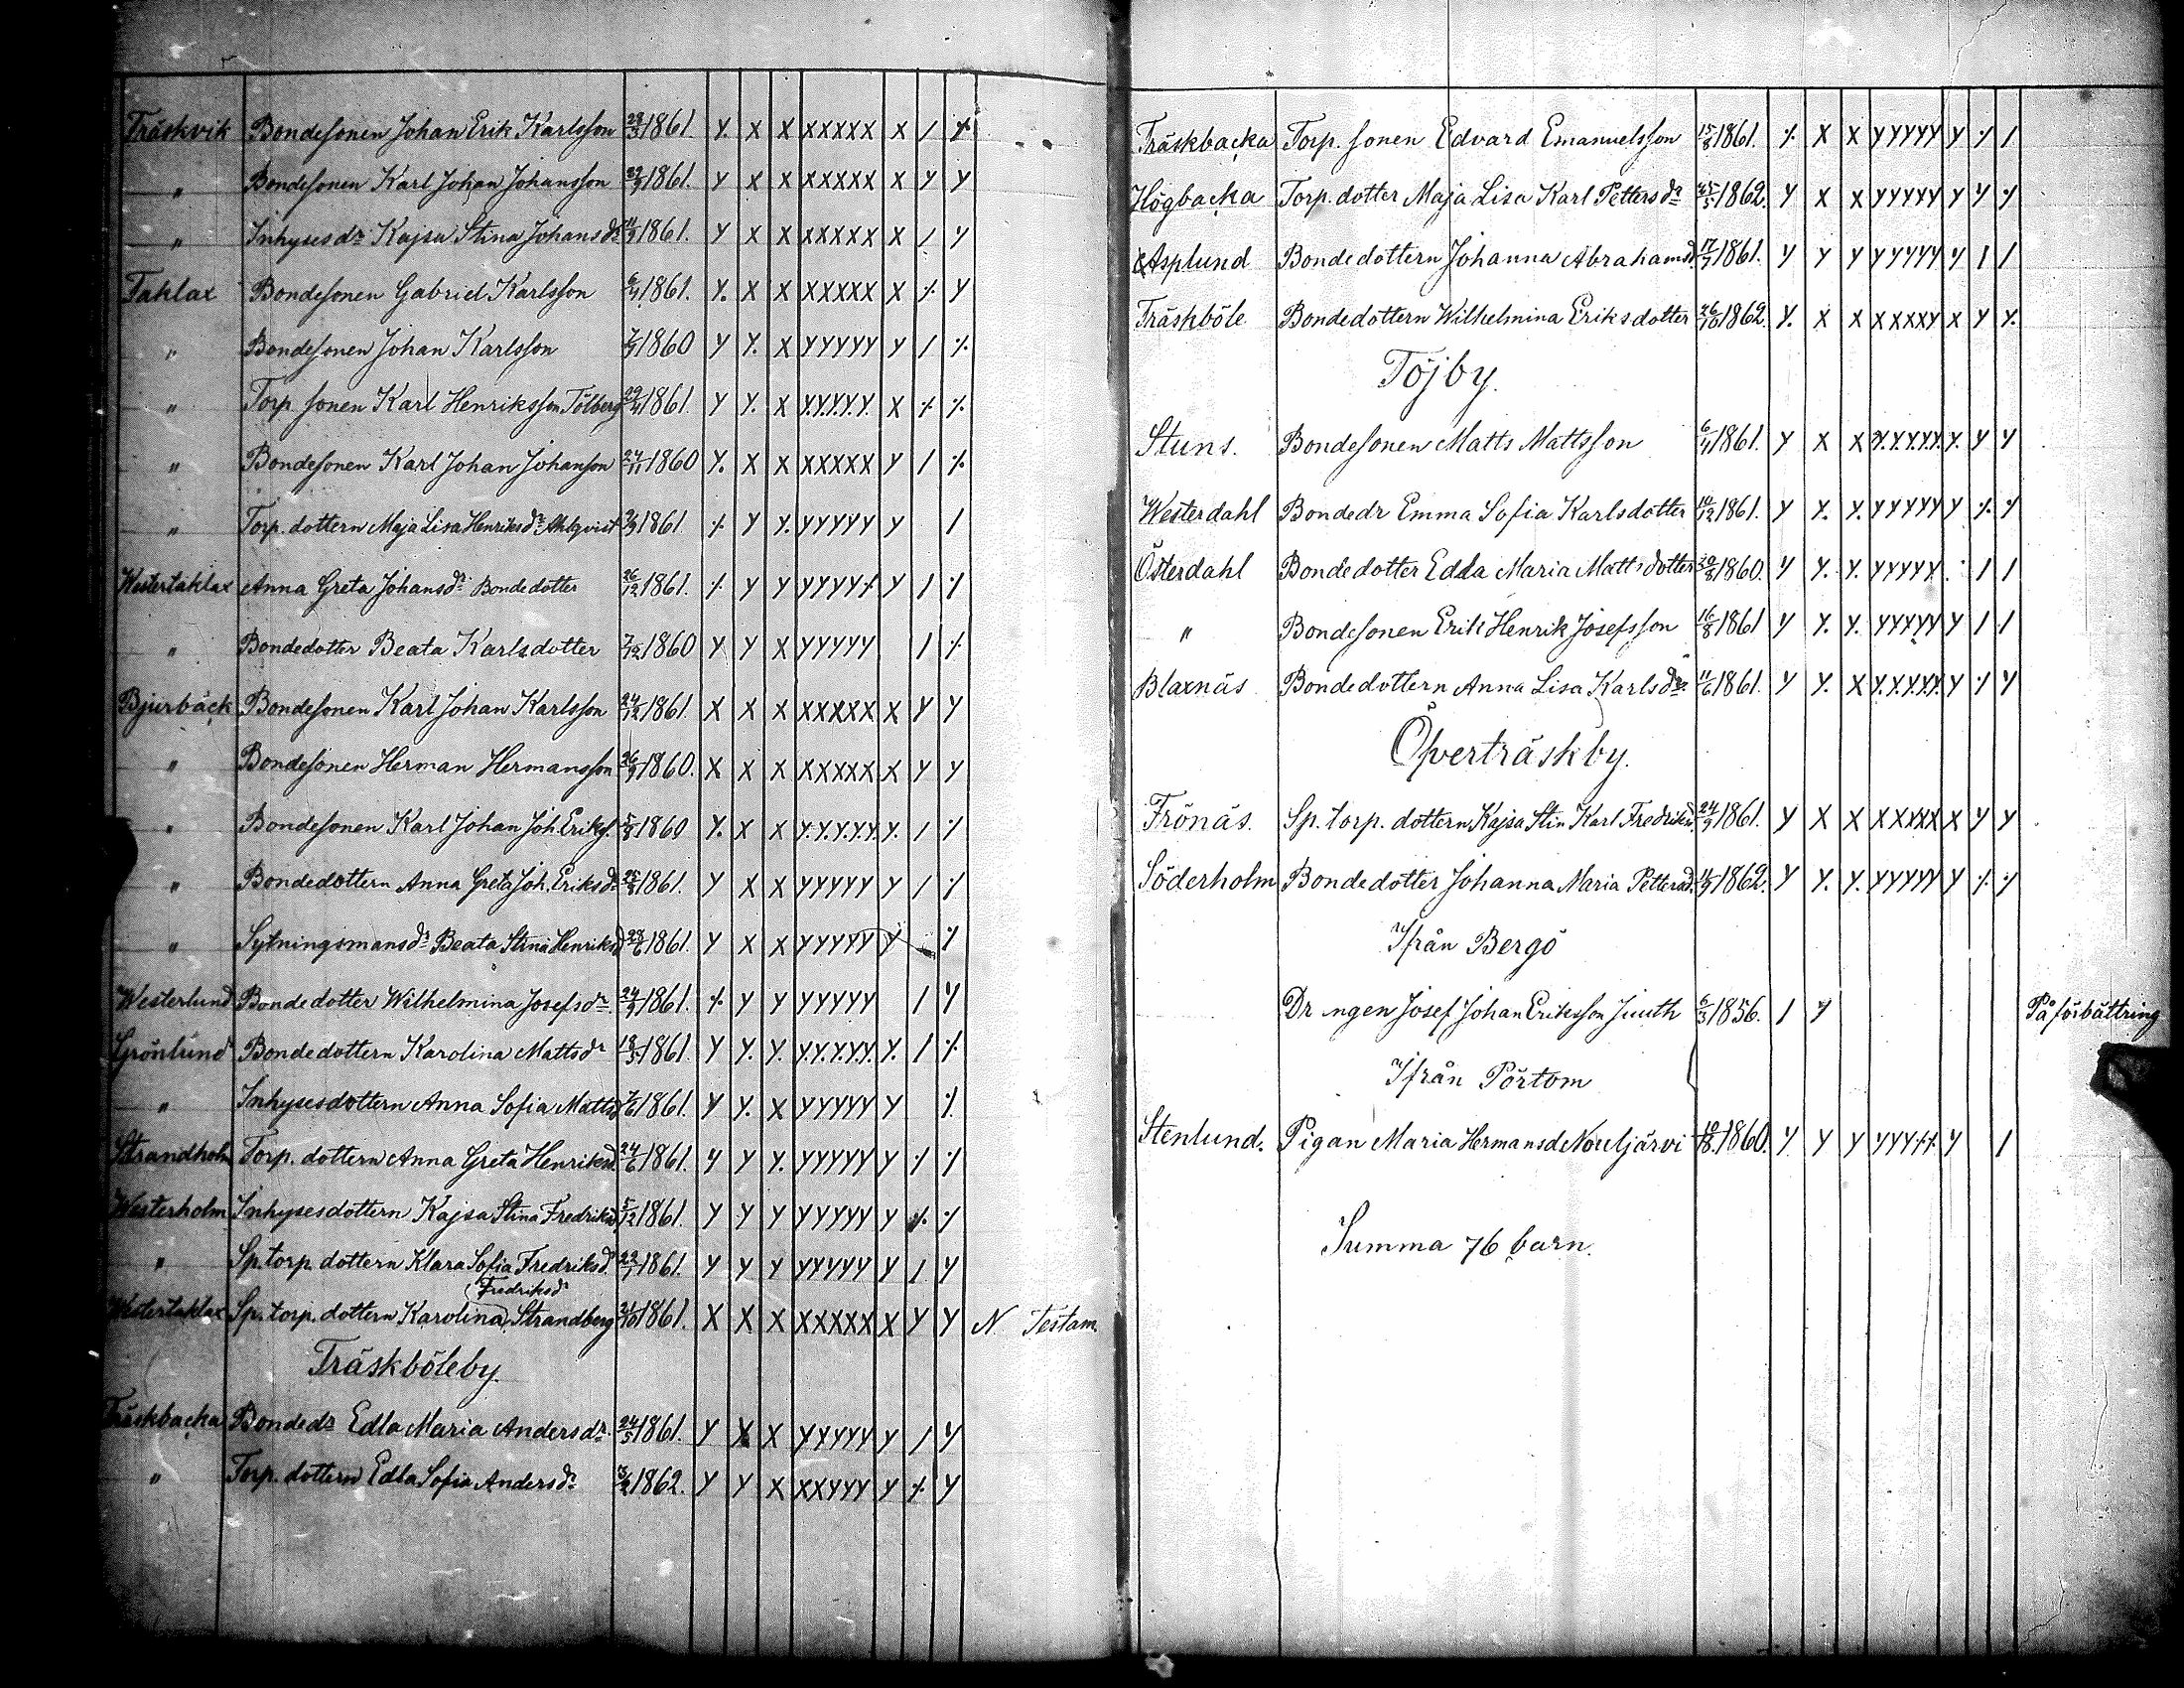 Träskvik Bondesonen Johan Erik Karlsson 1861. Y. X X XXXXX X / ⁒
" Bondesonen Karl Johan Johansson 1861. Y X X XXXXX X Y Y
" Inhyses dr Kajsa Stina Johans dr 1861. Y X X XXXXX X / Y
Taklax Bondesonen Gabriel Karlsson 6/4 1861. Y. X X XXXXX X ⁒ Y
" Bondesonen Johan Karlsson 1860 Y Y. X YYYYY Y / ⁒
" Torp sonen Karl Henriksson Tölberg 29/4 1861. Y Y. X Y.Y.Y.Y.Y. X ⁒ ⁒
" Bondesonen Karl Johan Johanson 24/11 1860 Y. X X XXXXX Y / ⁒
" Torp. dottern Maja Lisa Henriksdr Ahlqvist 1861 ⁒ Y Y. YYYYY Y /
Westertaklax Anna Greta Johansdr Bondedotter 26/12 1861. ⁒ Y Y YYYY⁒ Y / ⁒
" Bondedotter Beata Karlsdotter 7/12 1860 Y Y X YYYYY / ⁒
Bjurbäck Bondesonen Karl Johan Karlsson 24/12 1861. X X X XXXXX X Y Y
" Bondesonen Herman Hermansson 26/9 1860. X X X XXXXX X Y Y
" Bondesonen Karl Johan Joh. Eriks. 5/8 1860 Y. X X Y.Y.Y.Y.Y. Y. / ⁒
" Bondedottern Anna Greta Joh. Eriksdr 25/8 1861. Y X X YYYYY Y / ⁒
" Sytningsmansdr Beata Stina Henriksd 28/6 1861. Y X X YYYYY Y ⁒
Westerlund Bondedotter Wilhelmina Josefsdr 24/9 1861. ⁒ Y Y YYYYY / Y
Grönlund Bondedottern Karolina Mattsdr 18/3 1861. Y Y. Y. Y.Y.Y.Y.Y. Y. / ⁒
" Inhysesdottern Anna Sofia Mattsd 7/6 1861. Y Y. X YYYYY Y ⁒
Strandholm Torp. dottern Anna Greta Henriksd. 24/6 1861. Y Y Y. YYYYY Y ⁒ ⁒
Westerholm Inhysesdottern Kajsa Stina Fredriksd 5/12 1861. Y Y Y YYYYY Y ⁒ ⁒
" Sp. torp. dottern Klara Sofia Fredriksd. 22/7 1861. Y Y Y YYYYY Y / Y
Fredriksdr
Westertaklax Sp. torp. dottern Karolina Strandberg 21/10 1861. X X X XXXXX X Y Y N. Testam.
Träskböleby.
Träskbacka Bondedr Edla Maria Andersdr 24/5 1861. Y X X YYYYY Y / Y
" Torp. dottern Edla Sofia Andersdr 3/2 1862. Y Y X XXYYY Y ⁒ Y
Träskbacka Torp. sonen Edvard Emanuelsson 15/8 1861. ⁒ X X YYYYY Y ⁒ /
Högbacka Torp. dotter Maja Lisa Karl Petters dr 1862. Y X X YYYYY Y Y ⁒
Asplund Bondedottern Johanna Abrahamsd. 17/7 1861. Y Y Y YYYYY Y / /
Träskböle Bondedottern Wilhelmina Eriksdotter 26/10 1862. Y. X X XXXXY X Y Y.
Töjby.
Stuns. Bondesonen Matts Mattsson 6/4 1861. Y X X Y.Y.Y.Y.Y. Y. Y Y
Westerdahl Bondedr Emma Sofia Karlsdotter 10/12 1861. Y Y. Y. YYYYY Y ⁒ ⁒
Österdahl Bondedotter Edla Maria Mattsdotter 20/8 1860. Y Y. Y. YYYYY . / /
" Bondesonen Erik Henrik Josefsson 16/8 1861 Y Y. Y. YYYYY Y / /
Blaxnäs Bondedottern Anna Lisa Karlsdr. 11/6 1861. Y Y. X Y.Y.Y.Y.Y. Y ⁒ Y
Öfverträskby.
Frönäs. Sp. torp. dottern Kajsa Stin Karl Fredriksd. 24/9 1861. Y X X XXXXX X Y Y
Söderholm Bondedotter Johanna Maria Pettersd. 1862. Y Y. Y. YYYYY Y ⁒ ⁒
Ifrån Bergö
Dr ngen Josef Johan Eriksson Juuth 6/3 1856. / Y På förbättring
Ifrån Pörtom
Stenlund. Pigan Maria Hermansd Nouljärvi 1860. Y. Y Y YYY⁒⁒ Y /
Summa 76 barn.